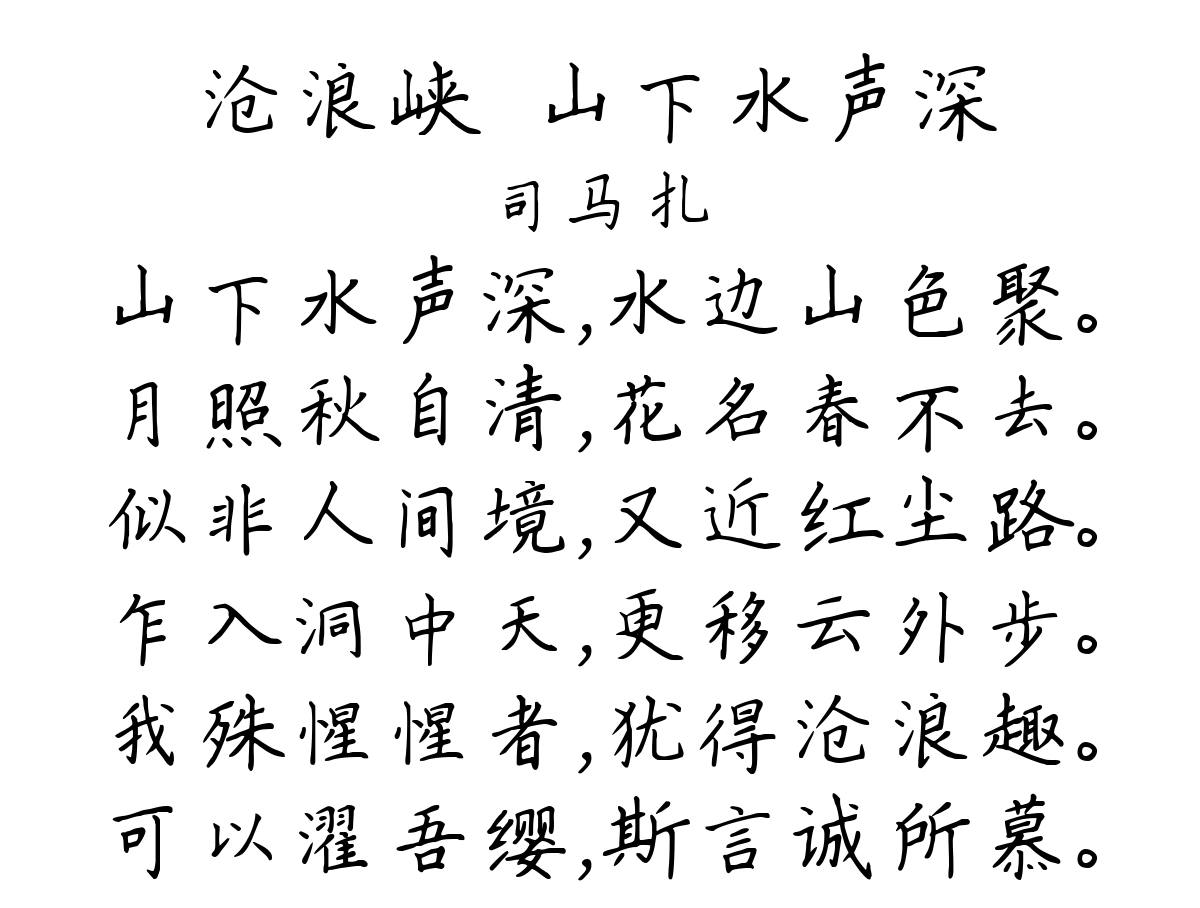 沧浪峡 山下水声深
司马扎
山下水声深,水边山色聚。
月照秋自清,花名春不去。
似非人间境,又近红尘路。
乍入洞中天,更移云外步。
我殊惺惺者,犹得沧浪趣。
可以濯吾缨,斯言诚所慕。